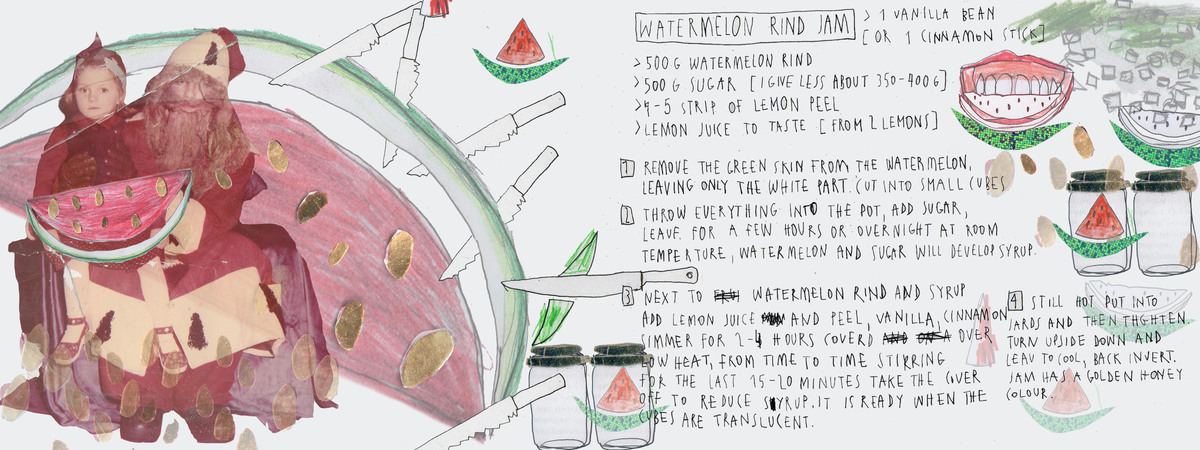 WATERMELON RIND JAM
> 1 VANILLA BEAN
[OR 1 CINNAMON STICK]
> 500 G WATERMELON RIND
> 500 G SUGAR [I GIVE LESS ABOUT 350-400 G]
> 4-5 STRIP OF LEMON PEEL
> LEMON JUICE TO TASTE [FROM 2 LEMONS]
1 REMOVE THE GREEN SKIN FROM THE WATERMELON,
LEAVING ONLY THE WHITE PART. CUT INTO SMALL CUBES
2 THROW EVERYTHING INTO THE POT, ADD SUGAR,
LEAVE. FOR A FEW HOURS OR OVERNIGHT AT ROOM
TEMPERTURE, WATERMELON AND SUGAR WILL DEVELOP SYRUP.
3 NEXT TO WATERMELON RIND AND SYRUP
ADD LEMON JUICE AND PEEL, VANILLA, CINNAMON
SIMMER FOR 2-4 HOURS COVERD OVER
LOW HEAT, FROM TIME TO TIME STIRRING
FOR THE LAST 15-20 MINUTES TAKE THE COVER
OFF TO REDUCE SYRUP. IT IS READY WHEN THE
CUBES ARE TRANSLUCENT.
4 STILL HOT PUT INTO
JARDS AND THEN THGHTEN
TURN UPSIDE DOWN AND
LEAV TO COOL, BACK INVERT.
JAM HAS A GOLDEN HONEY
COLOUR.